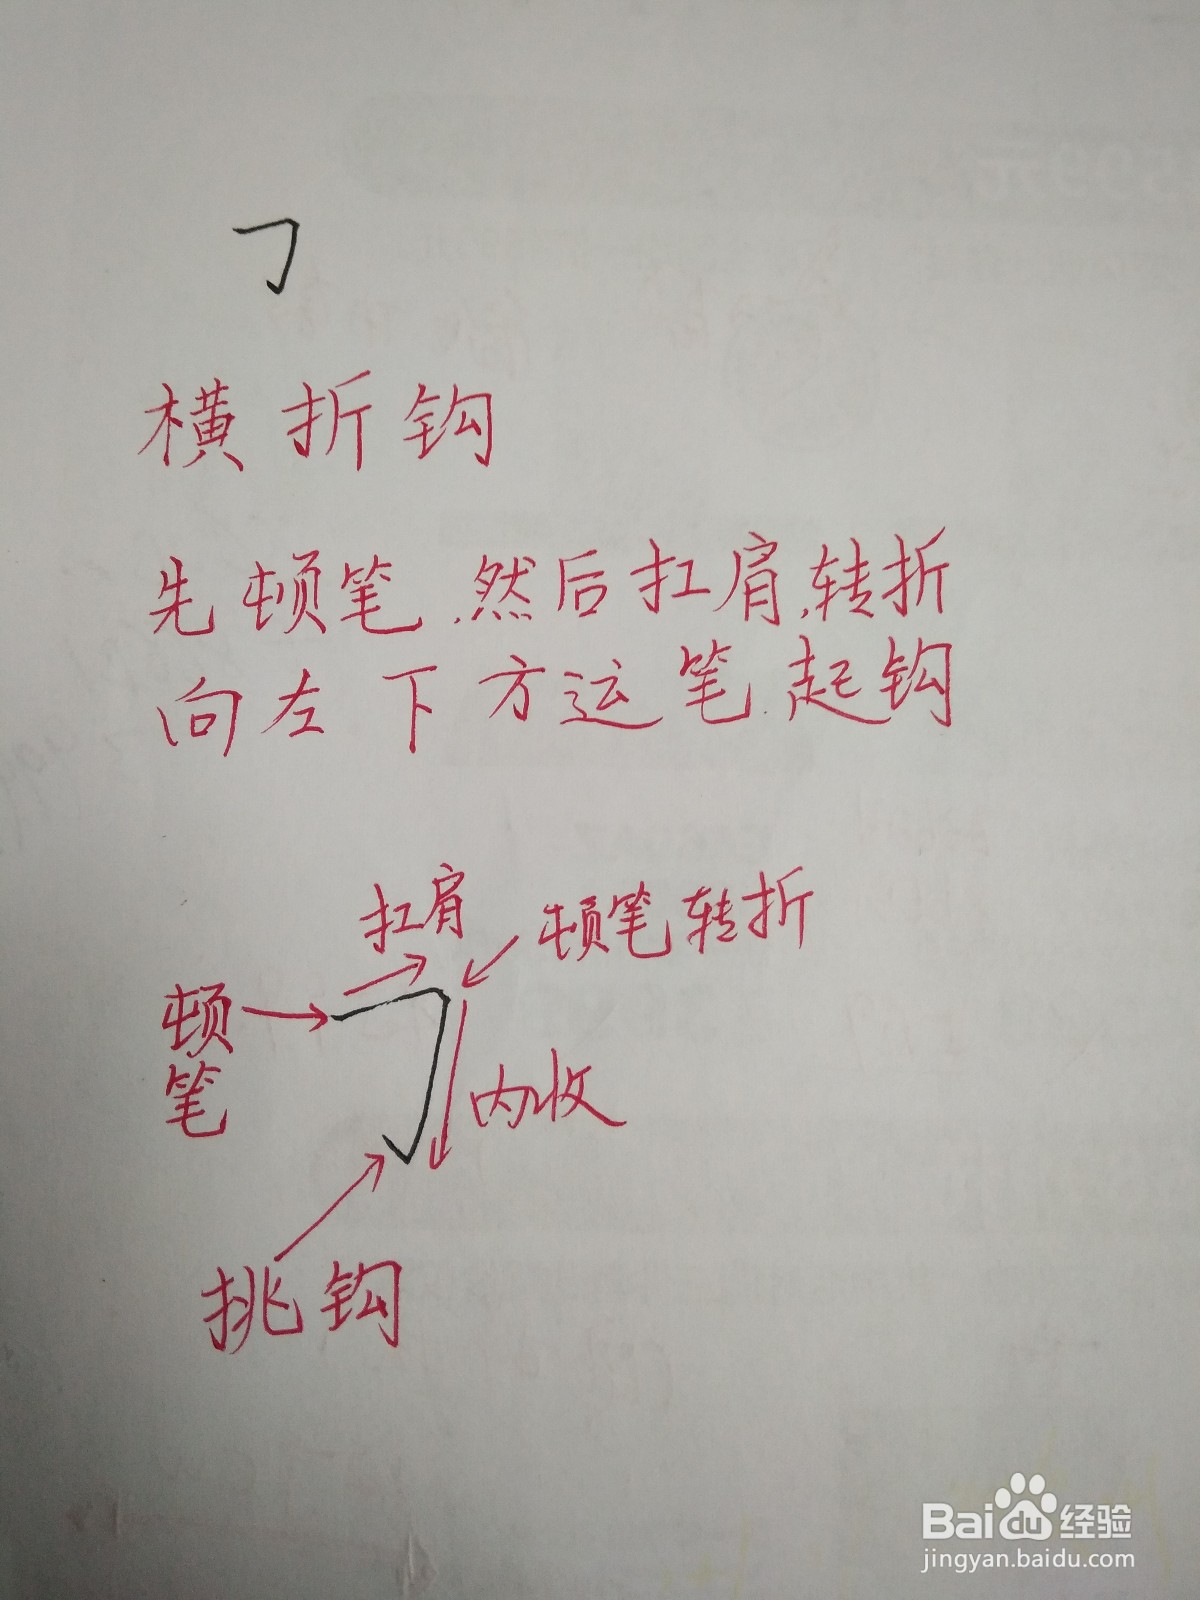 横折钩
先顿笔.然后扛肩,转折
向左下方运笔.起钩
扛肩
顿笔转折
顿笔
内收
挑钩
Baidu经验
jingyan.baidu.com